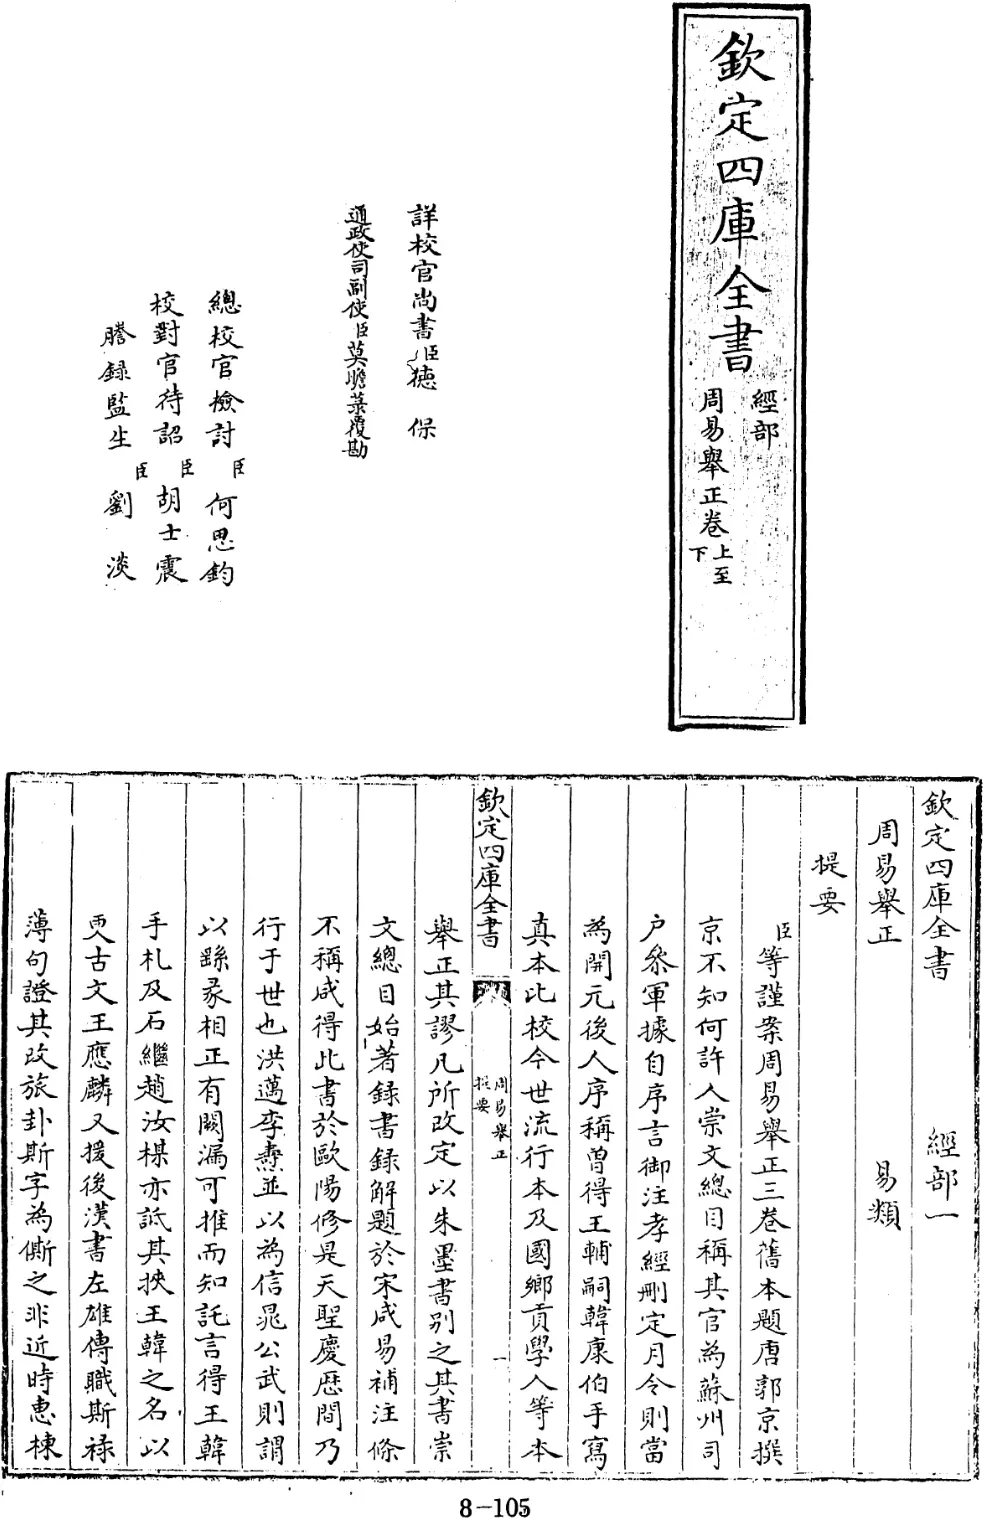 欽定四庫全書
經部
周易舉正卷上至下
詳校官尚書臣德保
通政使司副使臣莫瞻菉覆勘
總校官檢討臣何思鈞
校對官待詔臣胡士震
謄錄監生臣劉淡
欽定四庫全書 經部一
周易舉正 易類
提要
臣等謹案周易舉正三卷舊本題唐郭京撰
京不知何許人崇文總目稱其官為蘇州司
户參軍據自序言御注孝經刪定月令則當
為開元後人序稱曽得王輔嗣韓康伯手寫
真本比校今世流行本及國鄉貢學人等本
欽定四庫全書
周易舉正
提要
一
舉正其謬凡所改定以朱墨書別之其書崇
文總目始著録書録解題於宋咸易補注條
不稱咸得此書於歐陽修是天聖慶歴間乃
行于世也洪邁李燾並以為信晁公武則謂
以繇彖相正有闕漏可推而知託言得王韓
手札及石繼趙汝楳亦詆其挾王韓之名以
更古文王應麟又援後漢書左雄傳職斯祿
薄句證其改旅卦斯字為㒋之非近時惠棟
8-105